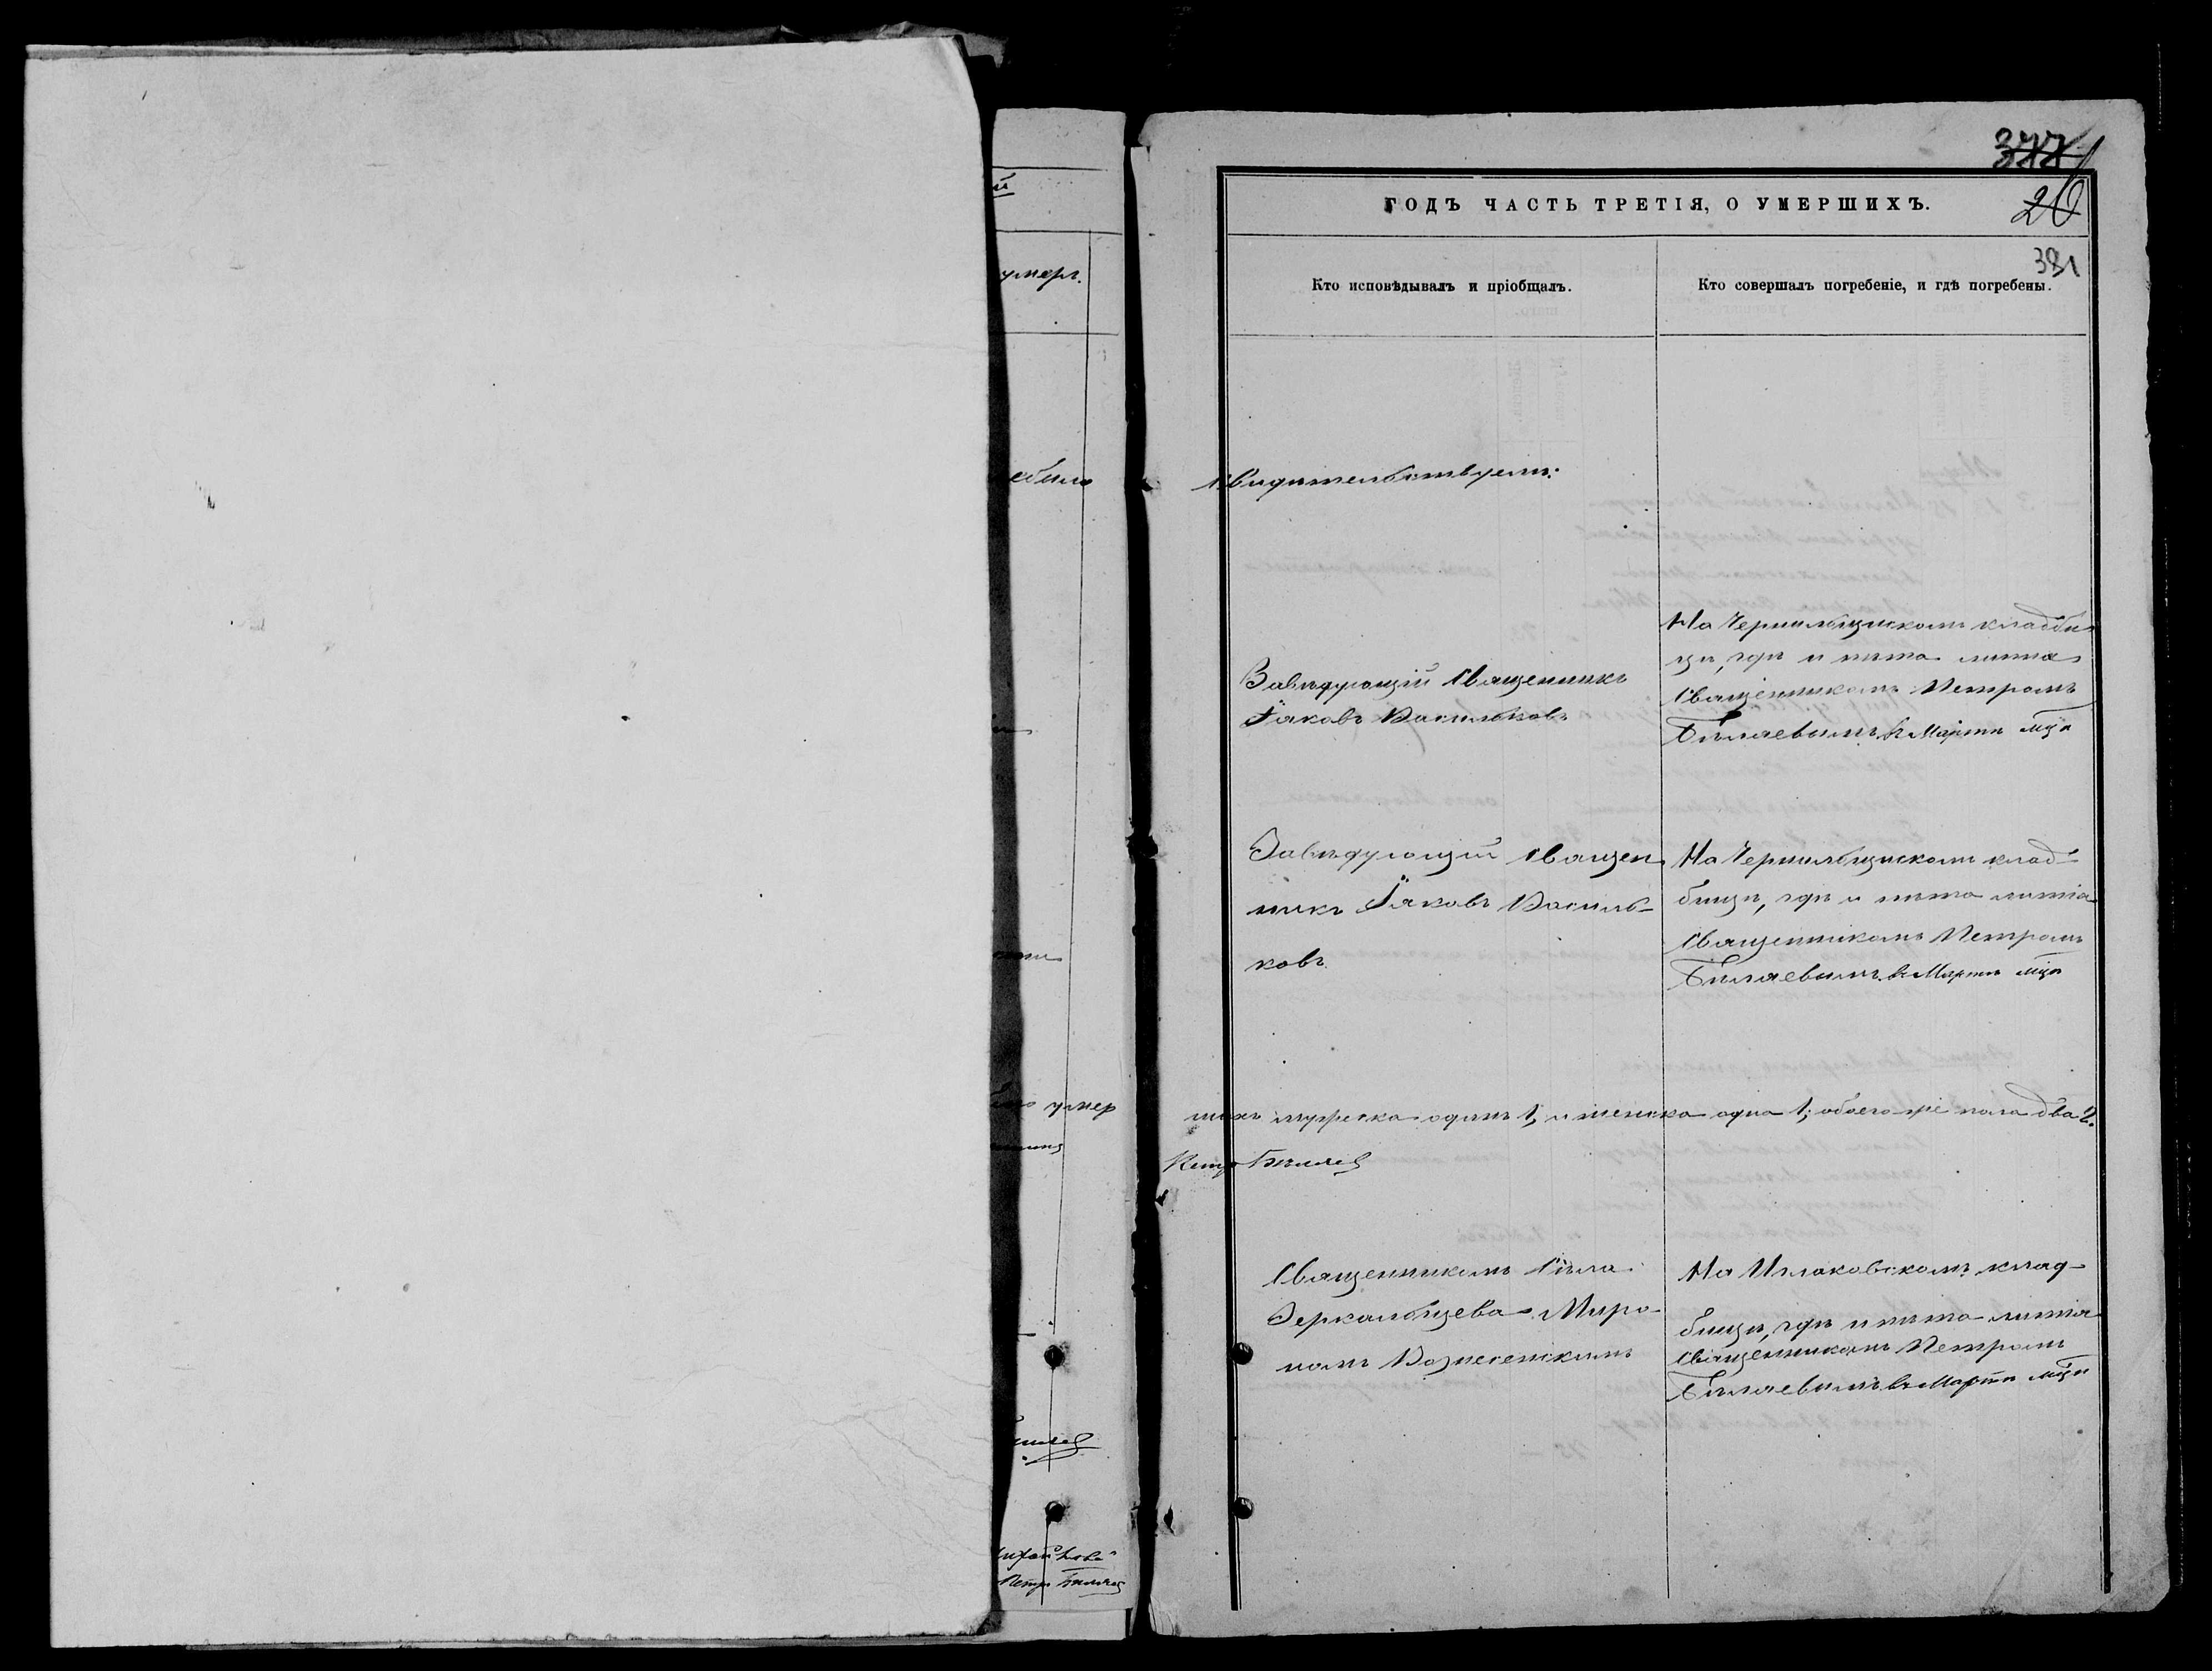 377
ГОДЪ ЧАСТЬ ТРЕТІЯ, О УМЕРШИХЪ.
20
381
Кто исповѣдывалъ и пріобщалъ.
Кто совершалъ погребеніе, и гдѣ погребены.
умеръ.
свидѣтельствуемъ:
Завѣдующій Священникъ
Іаковъ Васильковъ
На Чернильщискомъ кладби
щѣ, гдѣ и пѣта литія
Священникомъ Петромъ
Бѣляевымъ въ Мартѣ мцѣ
Завѣдующій Священ
никъ Іаковъ Василь-
ковъ
На Чернильщискомъ клад-
бищѣ, гдѣ и пѣта литія
Священникомъ Петромъ
Бѣляевымъ въ Мартѣ мцѣ
умер
шихъ мужеска одинъ 1, и женска одна 1; обоего же пола два 2.
Петръ Бѣляев
Священникомъ Села
Зеркальцева Миро-
номъ Вознесенскимъ
На Иглаковскомъ клад-
бищѣ, гдѣ и пѣта литія
Священникомъ Петромъ
Бѣляевымъ въ Мартѣ мцѣ
Петръ Бѣляев